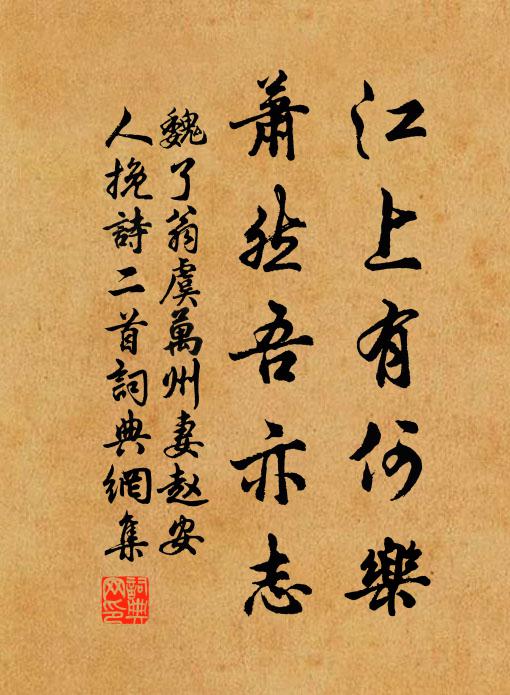 江上有何樂
蕭然吾亦志
魏了翁虞萬州妻趙安
人挽詩二首詞典網集
詞典網印